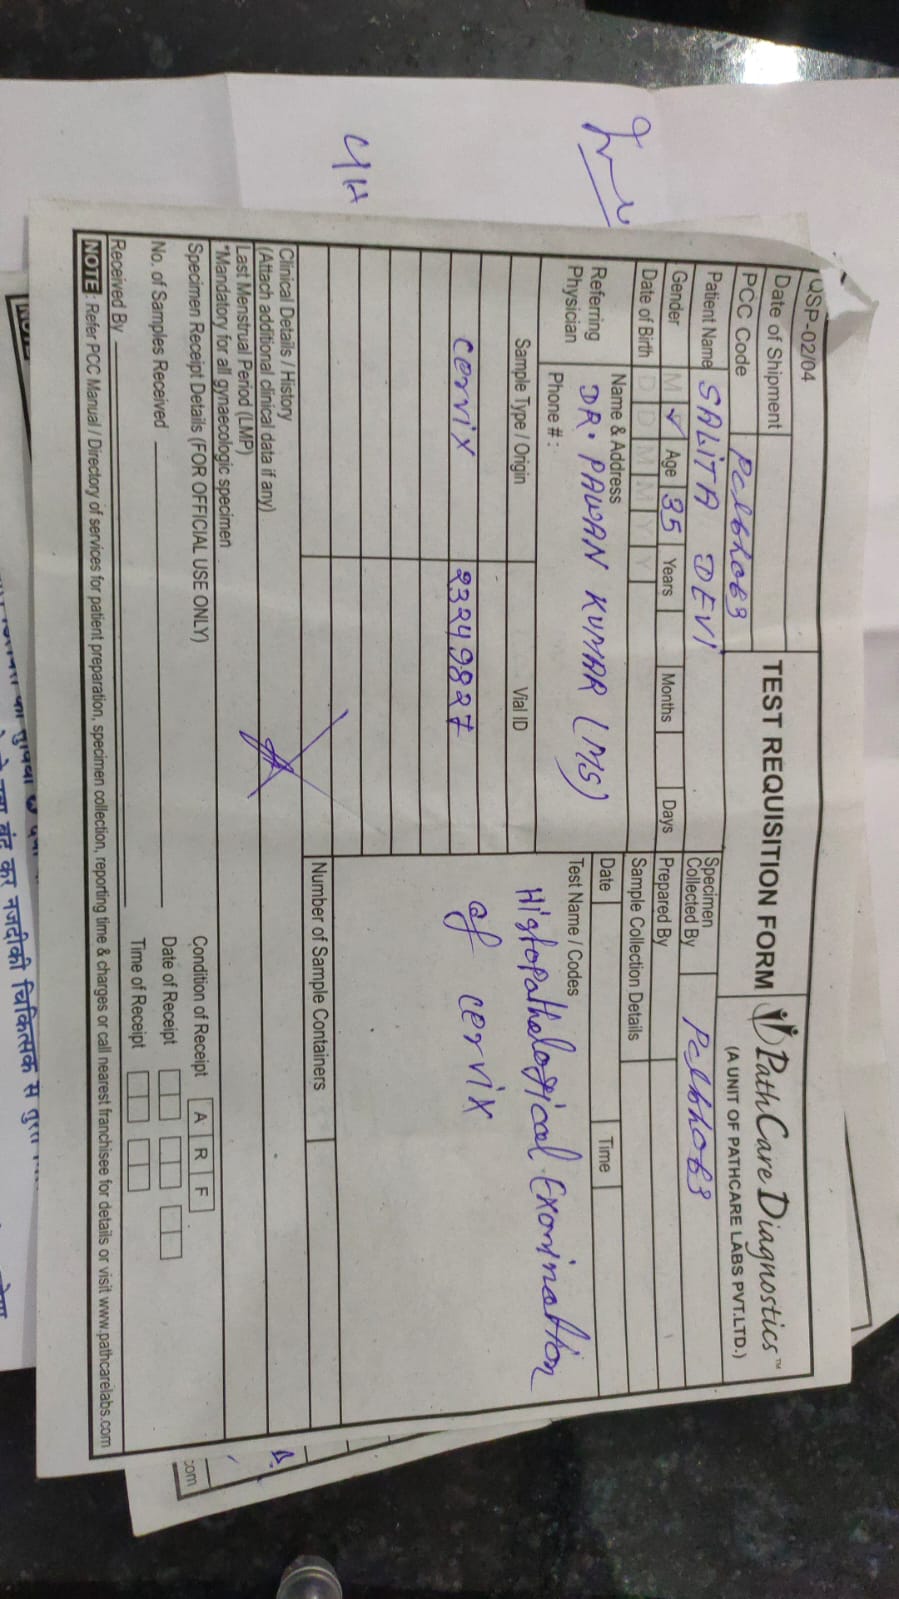 QSP-02/04
TEST REQUISITION FORM
PathCare Diagnostics™
(A UNIT OF PATHCARE LABS PVT.LTD.)
Date of Shipment
PCC Code
Patient Name SALITA DEVI
Specimen Collected By
Gender M ✓ Age 35 Years Months Days
Prepared By
Date of Birth D D M M Y Y
Sample Collection Details
Referring Physician
Name & Address
DR. PAWAN KUMAR (MS)
Phone # :
Date Time
Sample Type / Origin Vial ID
cervix 23249827
Test Name / Codes
Histopathological Examination
of cervix
Number of Sample Containers
Clinical Details / History
(Attach additional clinical data if any)
Last Menstrual Period (LMP)
*Mandatory for all gynaecologic specimen
Specimen Receipt Details (FOR OFFICIAL USE ONLY)
Condition of Receipt A R F
No. of Samples Received
Date of Receipt
Received By
Time of Receipt
NOTE : Refer PCC Manual / Directory of services for patient preparation, specimen collection, reporting time & charges or call nearest franchisee for details or visit www.pathcarelabs.com
com
बंद कर नजदीकी चिकित्सक